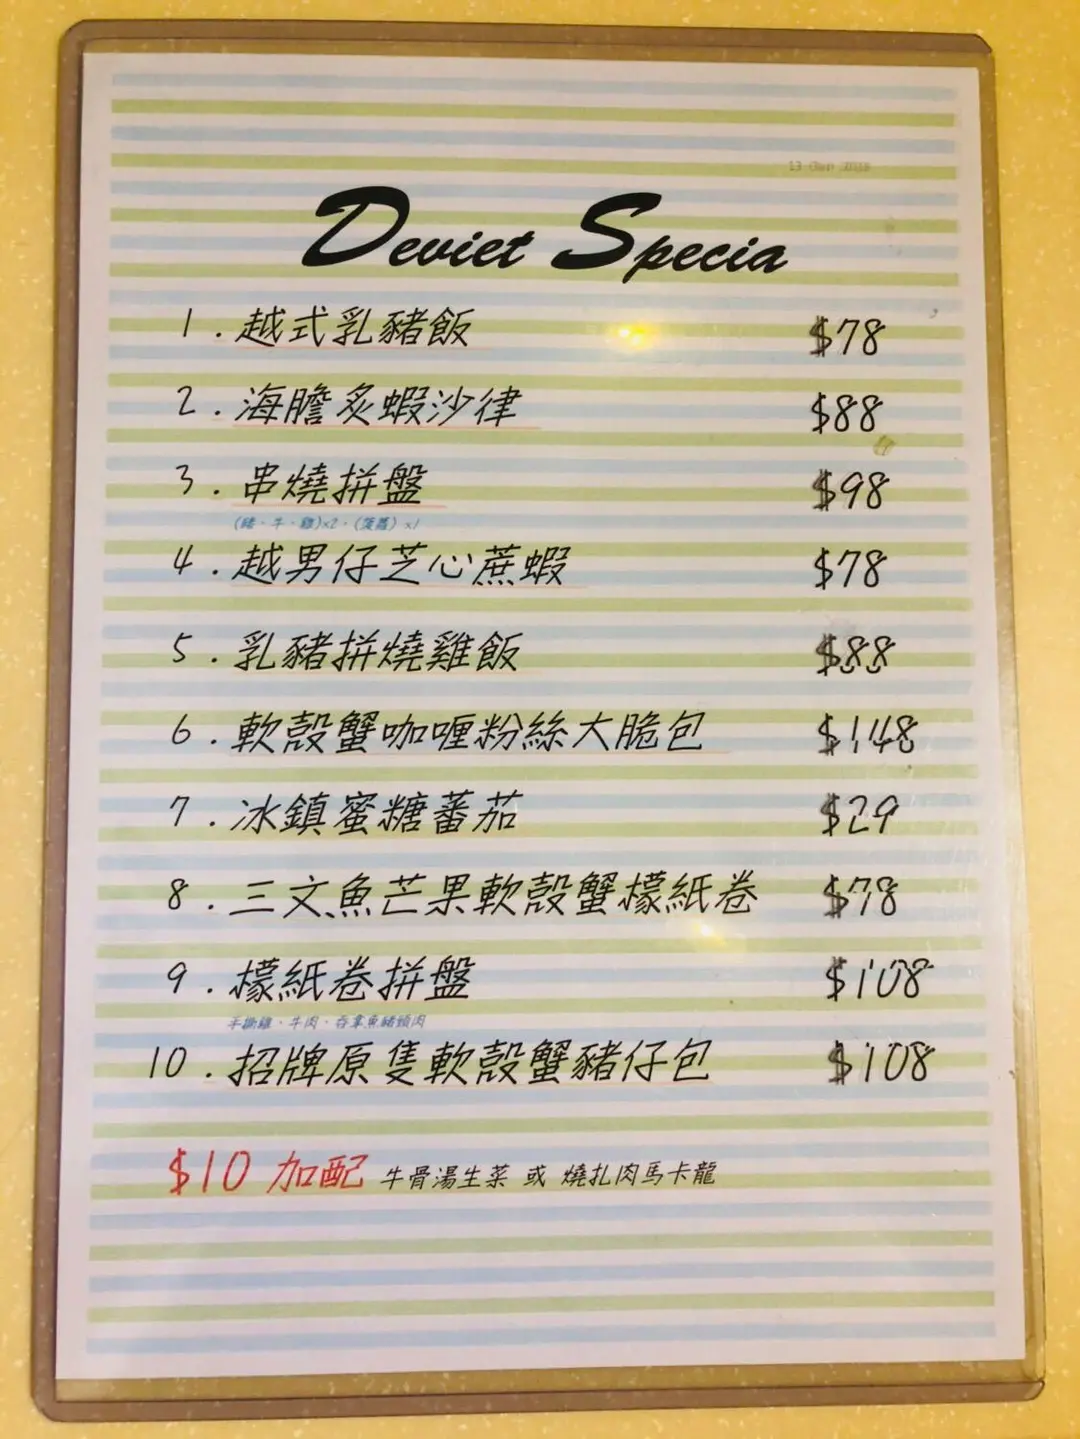 Deviet Specia
1. 越式乳豬飯 $78
2. 海膽炙蝦沙律 $88
3. 串燒拼盤 $98
(豬、牛、雞)x2、(菠蘿) x1
4. 越男仔芝心蔗蝦 $78
5. 乳豬拼燒雞飯 $88
6. 軟殼蟹咖喱粉絲大脆包 $148
7. 冰鎮蜜糖蕃茄 $29
8. 三文魚芒果軟殼蟹檬紙卷 $78
9. 檬紙卷拼盤 $108
手撕雞、牛肉、吞拿魚豬頸肉
10. 招牌原隻軟殼蟹豬仔包 $108
$10 加配 牛骨湯生菜 或 燒扎肉馬卡龍